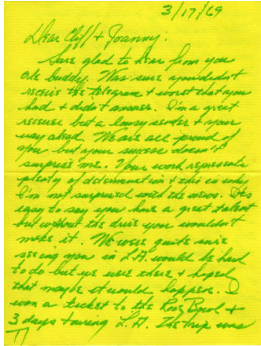 3/17/69
Dear Cliff + Joanny.
Sure glad to hear from you
ole buddy. Was sure you didn't
receive the telegram + worst that you
had + didn't answer. I'm a great
receiver but a lousy sender + your
way ahead. We are all proud of
you but your success doesn't
surprise me. Your work represents
plenty of determination + this is why
I'm not surprised with the news. It's
easy to say you have a great talent
but without the drive you wouldn't
make it. We were quite sure
seeing you in L.A. would be hard
to do but we were there + hoped
that maybe it would happen. I
won a ticket to the Rose Bowl +
3 days touring L.A. The trip was